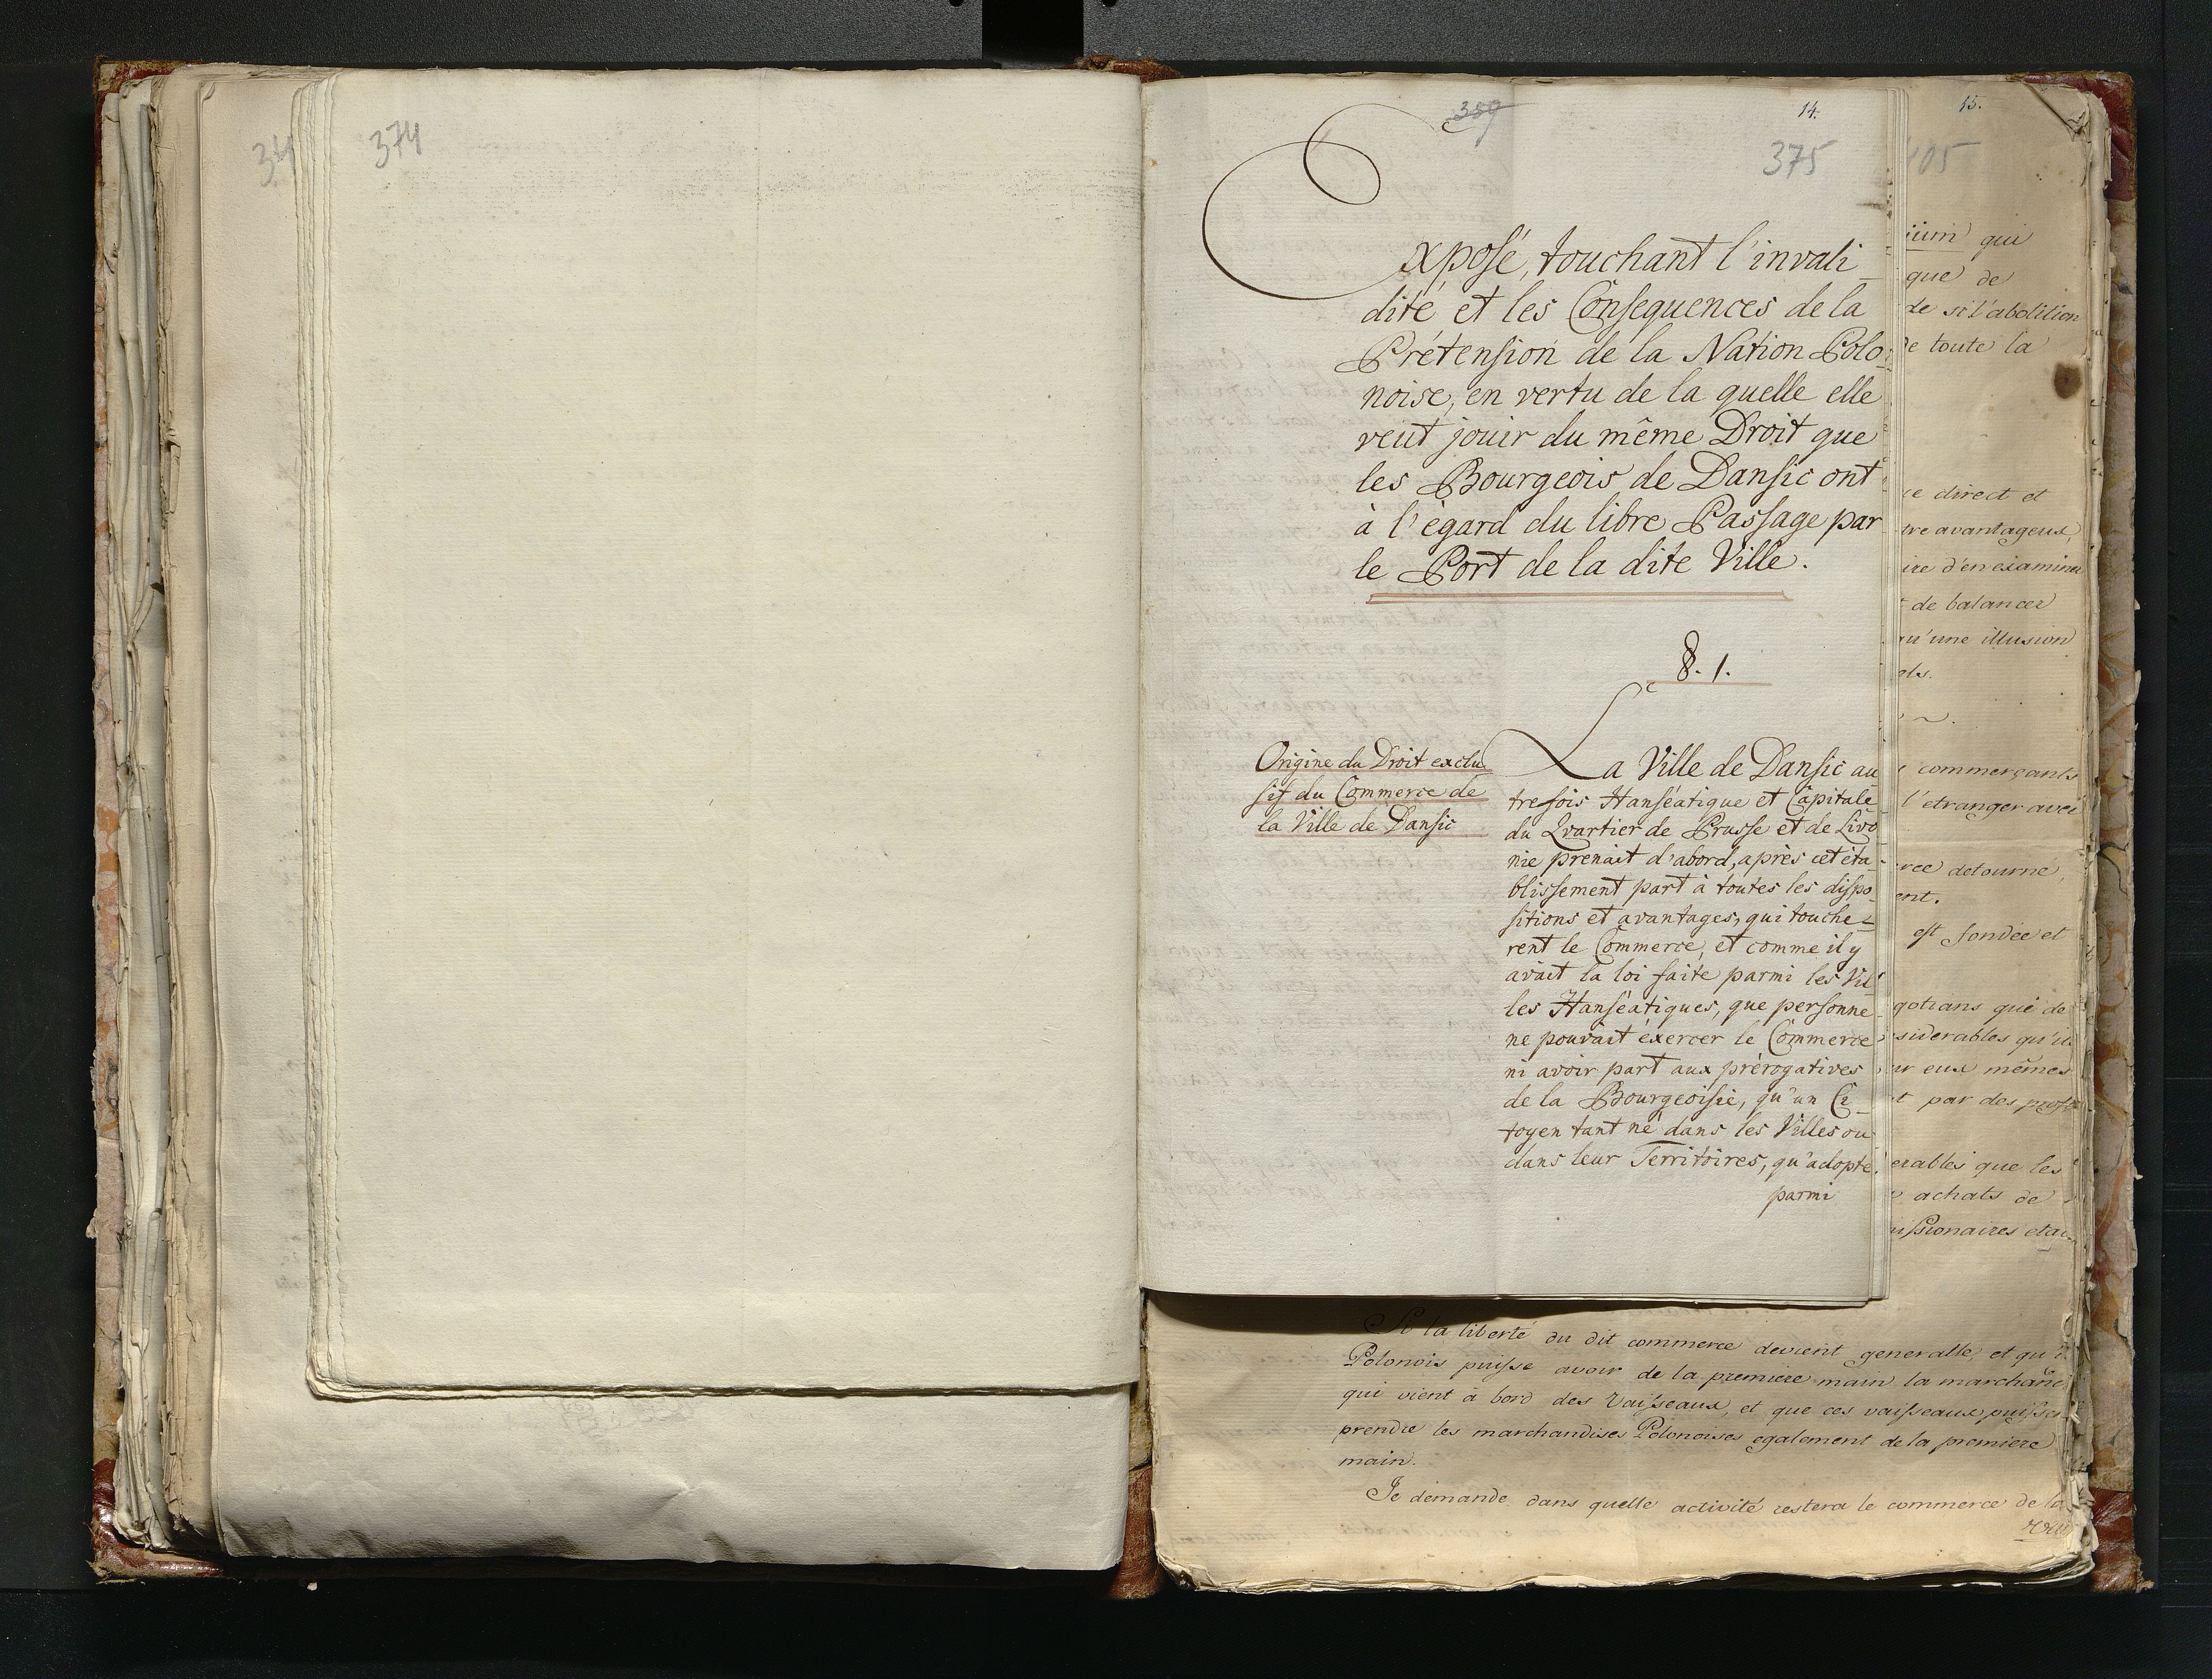 374
359
14.
375
Exposé, touchant l'invali-
dité et les Consequences de la
Prétension de la Nation Polo-
noise, en vertu de la quelle elle
veut jouir du même Droit que
les Bourgeois de Dansic ont
à l'égard du libre Passage par
le Port de la dite Ville.
§. 1.
Origine du Droit exclu
sif du Commerce de
la Ville de Dansic
La Ville de Dansic au
trefois Hanséatique et Capitale
du Quartier de Prusse et de Livo
nie prenait d'abord, après cet éta-
blissement part à toutes les dispo-
sitions et avantages, qui touche-
rent le Commerce, et comme il y
avait la loi faite parmi les Vil-
les Hanséatiques, que personne
ne pouvait éxercer le Commerce
ni avoir part aux prérogatives
de la Bourgeoisie, qu'un Ci-
toyen tant né dans les Villes ou
dans leur Territoires, qu'adopté
parmi
15.
qui
que de
de si l'abolition
de toute la
direct et
avantageux,
d'en examiner
de balancer
qu'une illusion
commerçants
l'etranger avec
detourné,
est fondée et
que de
qu'ils
eux mêmes
par des
que les
achats de
Si la liberté du dit commerce devient generalle, et qu'il
Polonois puisse avoir de la premiere main la marchand
qui vient à bord des Vaisseaux, et que ces vaisseaux puisse
prendre les marchandises Polonoises egalement de la premiere
main.
Je demande dans quelle activité restera le commerce de la